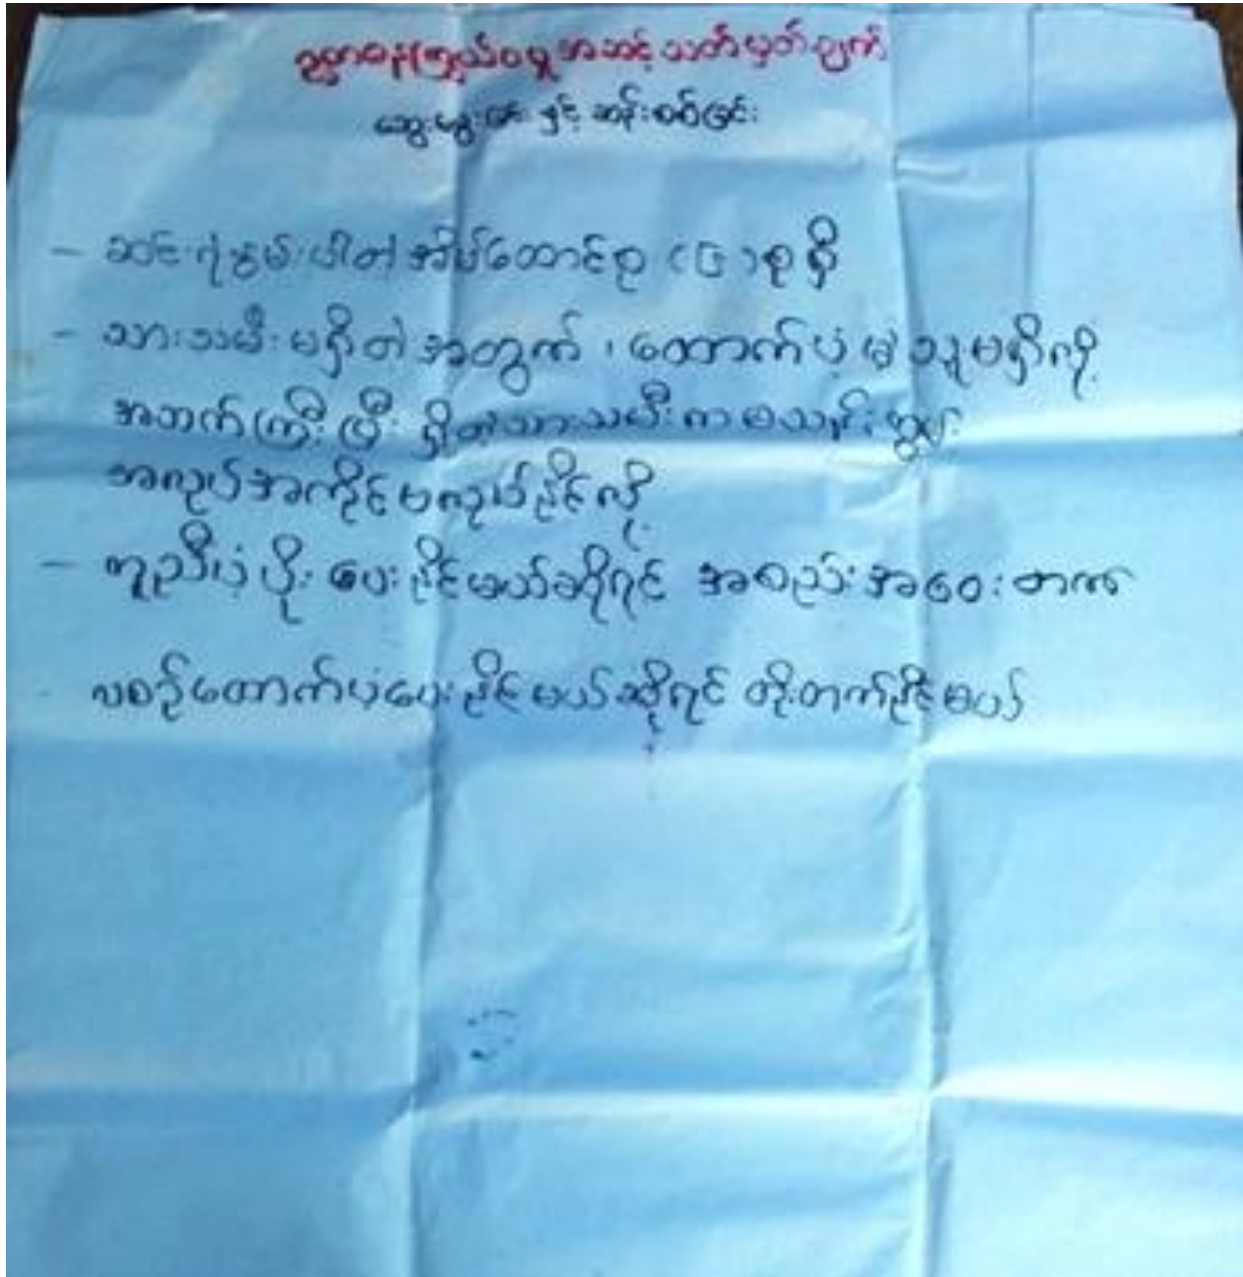 ဥစ္စာဓနကြွယ်ဝမှုအဆင့်သတ်မှတ်ချက်
ဆွေးနွေးခြင်းနှင့် ဆန်းစစ်ခြင်း
- ဆင်းရဲနွမ်းပါးတဲ့အိမ်ထောင်စု ( ) စုရှိ
- သားသမီးမရှိတဲ့အတွက်၊ ထောက်ပံ့မဲ့သူမရှိလို့
အသက်ကြီးပြီး ရှိတဲ့သားသမီးကမသန်စွမ်း
အလုပ်အကိုင်မလုပ်နိုင်လို့
- ကူညီပံ့ပိုးပေးနိုင်မယ်ဆိုရင် အစည်းအဝေးတက်
လစဉ်ထောက်ပံ့ပေးနိုင်မယ်ဆိုရင် တိုးတက်နိုင်မယ်